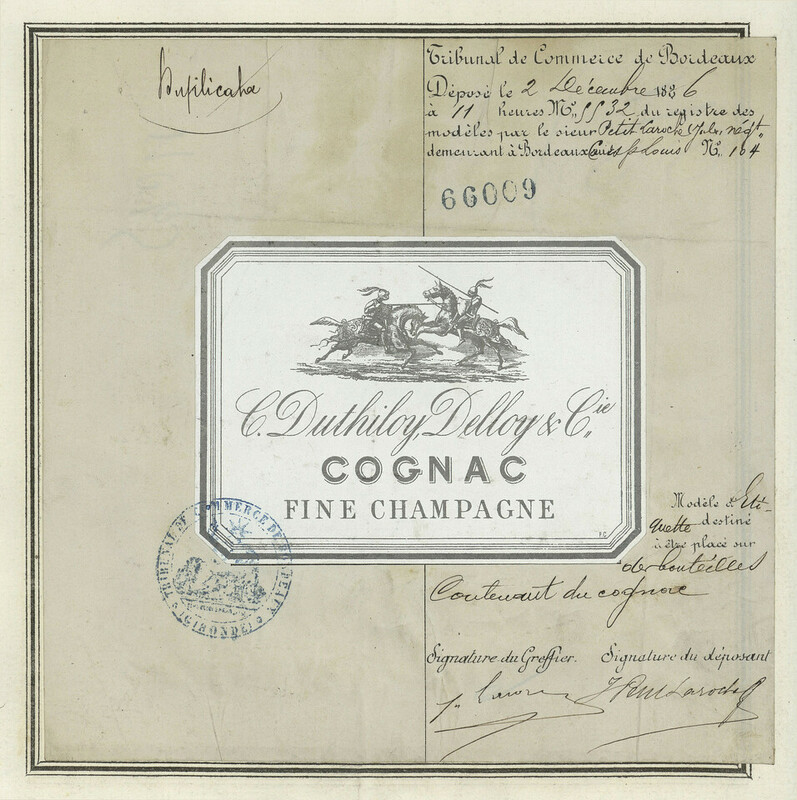 Duplicata
Tribunal de Commerce de Bordeaux
Déposé le 2 Décembre 1886
à 11 heures Nº 5532 du registre des
modèles par le sieur Petit Laroche Jules, négt
demeurant à Bordeaux Cours St Louis Nº 104
66009
C. Duthiloy, Delloy & Cie
COGNAC
FINE CHAMPAGNE
Modèle d' Eti-
quette destiné
à être placé sur
des bouteilles
Contenant du cognac
TRIBUNAL DE COMMERCE DE BORDEAUX
(GIRONDE)
Signature du Greffier. Signature du déposant
Petit Laroche